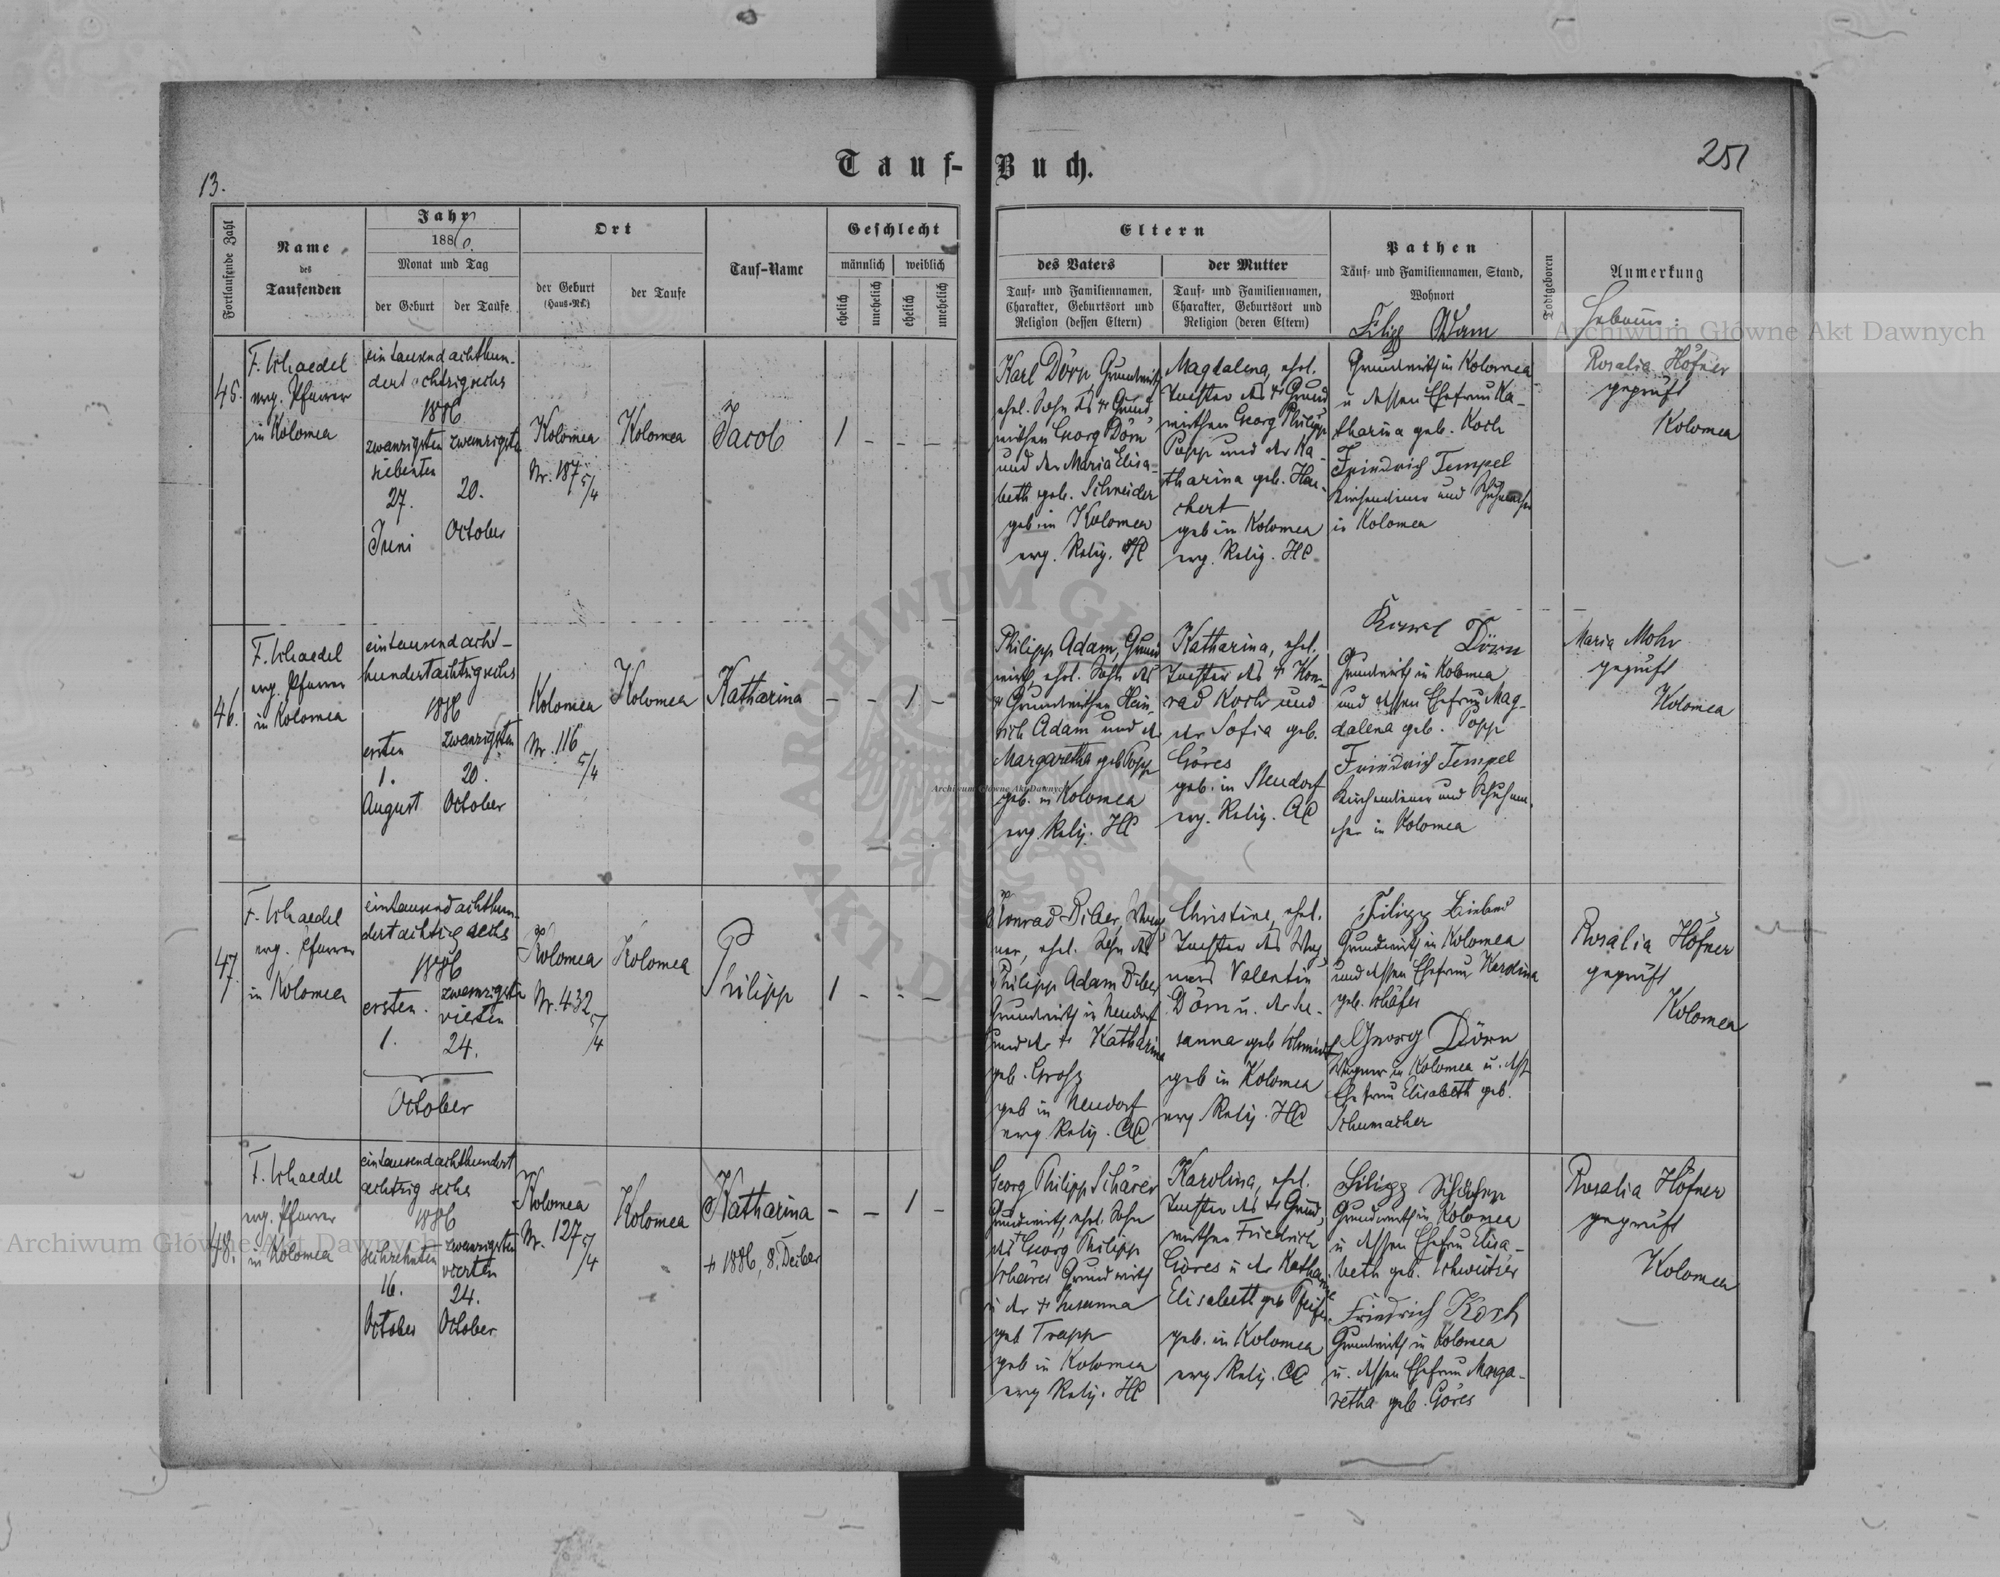 Tauf-Buch.
13.
251
Fortlaufende Zahl
Name
des
Taufenden
Jahr
1886.
Monat und Tag
der Geburt
der Taufe
Ort
der Geburt
(Haus-Nr.)
der Taufe
Tauf-Name
Geschlecht
männlich
weiblich
ehelich
unehelich
ehelich
unehelich
Eltern
des Vaters
Tauf- und Familiennamen,
Charakter, Geburtsort und
Religion (dessen Eltern)
der Mutter
Tauf- und Familiennamen,
Charakter, Geburtsort und
Religion (deren Eltern)
Pathen
Tauf- und Familiennamen, Stand,
Wohnort
Todtgeboren
Anmerkung
Hebamme:
45.
F. Schaedel
evg. Pfarrer
in Kolomea
eintausendachthun-
dertachtzigsechs
1886
zwanzigsten
siebenten
27.
Juni
zwanzigsten
20.
October
Kolomea
Nr. 187
5/4
Kolomea
Jacob
1 - - -
Karl Dörn Grundwirth
ehel. Sohn des + Grund
wirthen Georg Dörn
und der Maria Elisa-
beth geb. Schneider
geb. in Kolomea
evg. Relig. HC
Magdalena, ehel.
Tochter des + Grund
wirthen Georg Philipp
Popp und der Ka-
tharina geb. Har-
chert
geb in Kolomea
evg. Relig. HC
Filipp Adam
Grundwirth in Kolomea
u dessen Ehefrau Ka-
tharina geb. Koch
Friedrich Tempel
Kirchendiener und Schuhmacher
in Kolomea
Rosalia Höfner
geprüft
Kolomea
46.
F. Schaedel
evg. Pfarrer
in Kolomea
eintausendacht-
hundertachtzigsechs
1886
ersten
1.
August
zwanzigsten
20.
October
Kolomea
Nr. 116
5/4
Kolomea
Katharina
- - 1 -
Philipp Adam, Grund
wirth, ehel. Sohn des
+ Grundwirthen Hein-
rich Adam und der
Margaretha geb Popp
geb. in Kolomea
evg Relig. HC
Katharina, ehel.
Tochter des + Kon-
rad Koch und
der Sofia geb.
Göres
geb. in Neudorf
evg. Relig. AC
Karl Dörn
Grundwirth in Kolomea
und dessen Ehefrau Mag-
dalena geb. Popp
Friedrich Tempel
Kirchendiener und Schuhma-
cher in Kolomea
Maria Mohr
geprüft
Kolomea
47.
F. Schaedel
evg. Pfarrer
in Kolomea
eintausendachthun-
dertachtzigsechs
1886
ersten.
1.
zwanzigsten
vierten
24.
October
Kolomea
Nr. 432
5/4
Kolomea
Philipp
1 - - -
Konrad Biber, Wag-
ner, ehel. Sohn des
Philipp Adam Biber
Grundwirth in Neudorf
und der + Katharina
geb. Grosz
geb in Neudorf
evg. Relig. AC
Christine, ehel.
Tochter des Wag-
ners Valentin
Dörn u. der Su-
sanna geb Schmidt
geb in Kolomea
evg Relig. HC
Grundwirth in Kolomea
und dessen Ehefrau Karolina
geb. Schäfer
Georg Dörn
Wagner in Kolomea u. dess
Ehefrau Elisabeth geb.
Schumacher
Rosalia Höfner
geprüft
Kolomea
48.
F. Schaedel
evg. Pfarrer
in Kolomea
eintausendachthundert
achtzig sechs
1886
sechzehnten
16.
October
zwanzigsten
vierten
24.
October
Kolomea
Nr. 127
5/4
Kolomea
Katharina
+ 1886, 8. Dezber
- - 1 -
Georg Philipp Schärer
Grundwirth, ehel. Sohn
des Georg Philipp
Schärer Grundwirth
u der + Susanna
geb Trapp
geb in Kolomea
evg Relig. HC
Karolina, ehel.
Tochter des + Grund-
wirthen Friedrich
Göres u der Kathar.
Elisabeth geb Pfeifer
geb. in Kolomea
evg Relig. AC
Filipp Schäfer
Grundwirth in Kolomea
u dessen Ehefrau Elisa-
beth geb. Schweitzer
Friedrich Koch
Grundwirth in Kolomea
u. dessen Ehefrau Marga-
retha geb. Göres
Rosalia Höfner
geprüft
Kolomea
Archiwum Główne Akt Dawnych
Archiwum Główne Akt Dawnych
Archiwum Główne Akt Dawnych